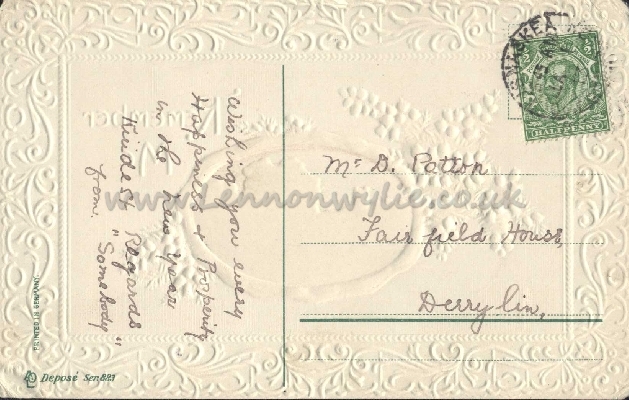 Wishing you every
Happiness & Prosperity
in the new year
Kindest Regards
from "Somebody"
Mr D. Patton
Fairfield House,
Derrylin,
HALFPENNY
www.lennonwylie.co.uk
Deposé Ser.